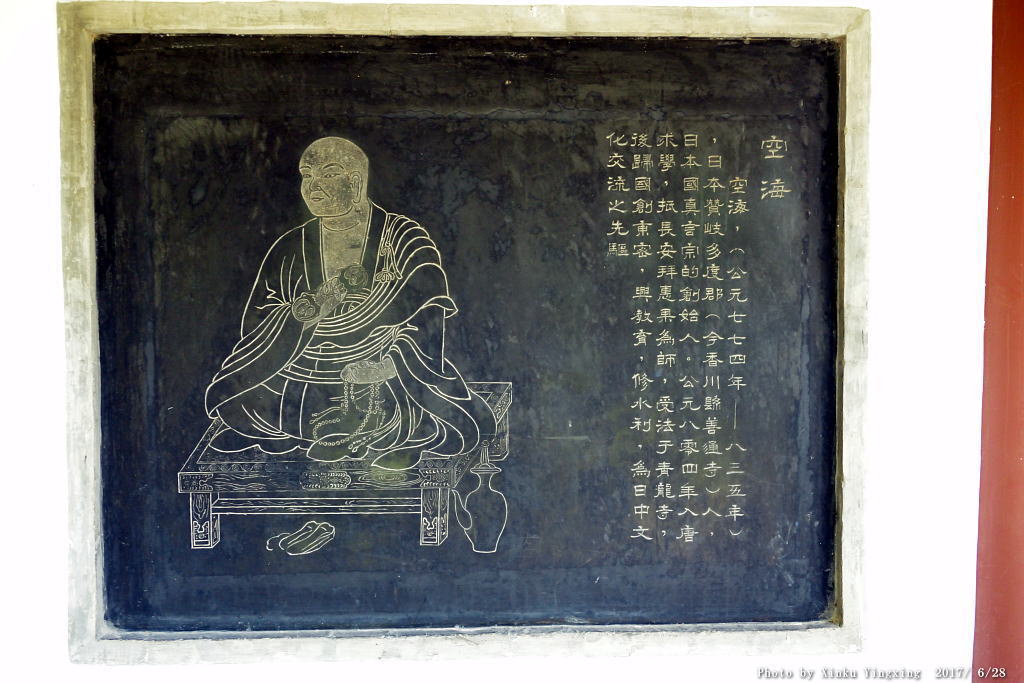 空海
空海，（公元七七四年——八三五年）
，日本贊岐多度郡（今香川縣善通寺）人，
日本國真言宗的創始人。公元八零四年入唐
求學，抵長安拜惠果為師，受法于青龍寺，
後歸國創東密，興教育，修水利，為日中文
化交流之先驅
Photo by Xinku Yingxing 2017/ 6/28